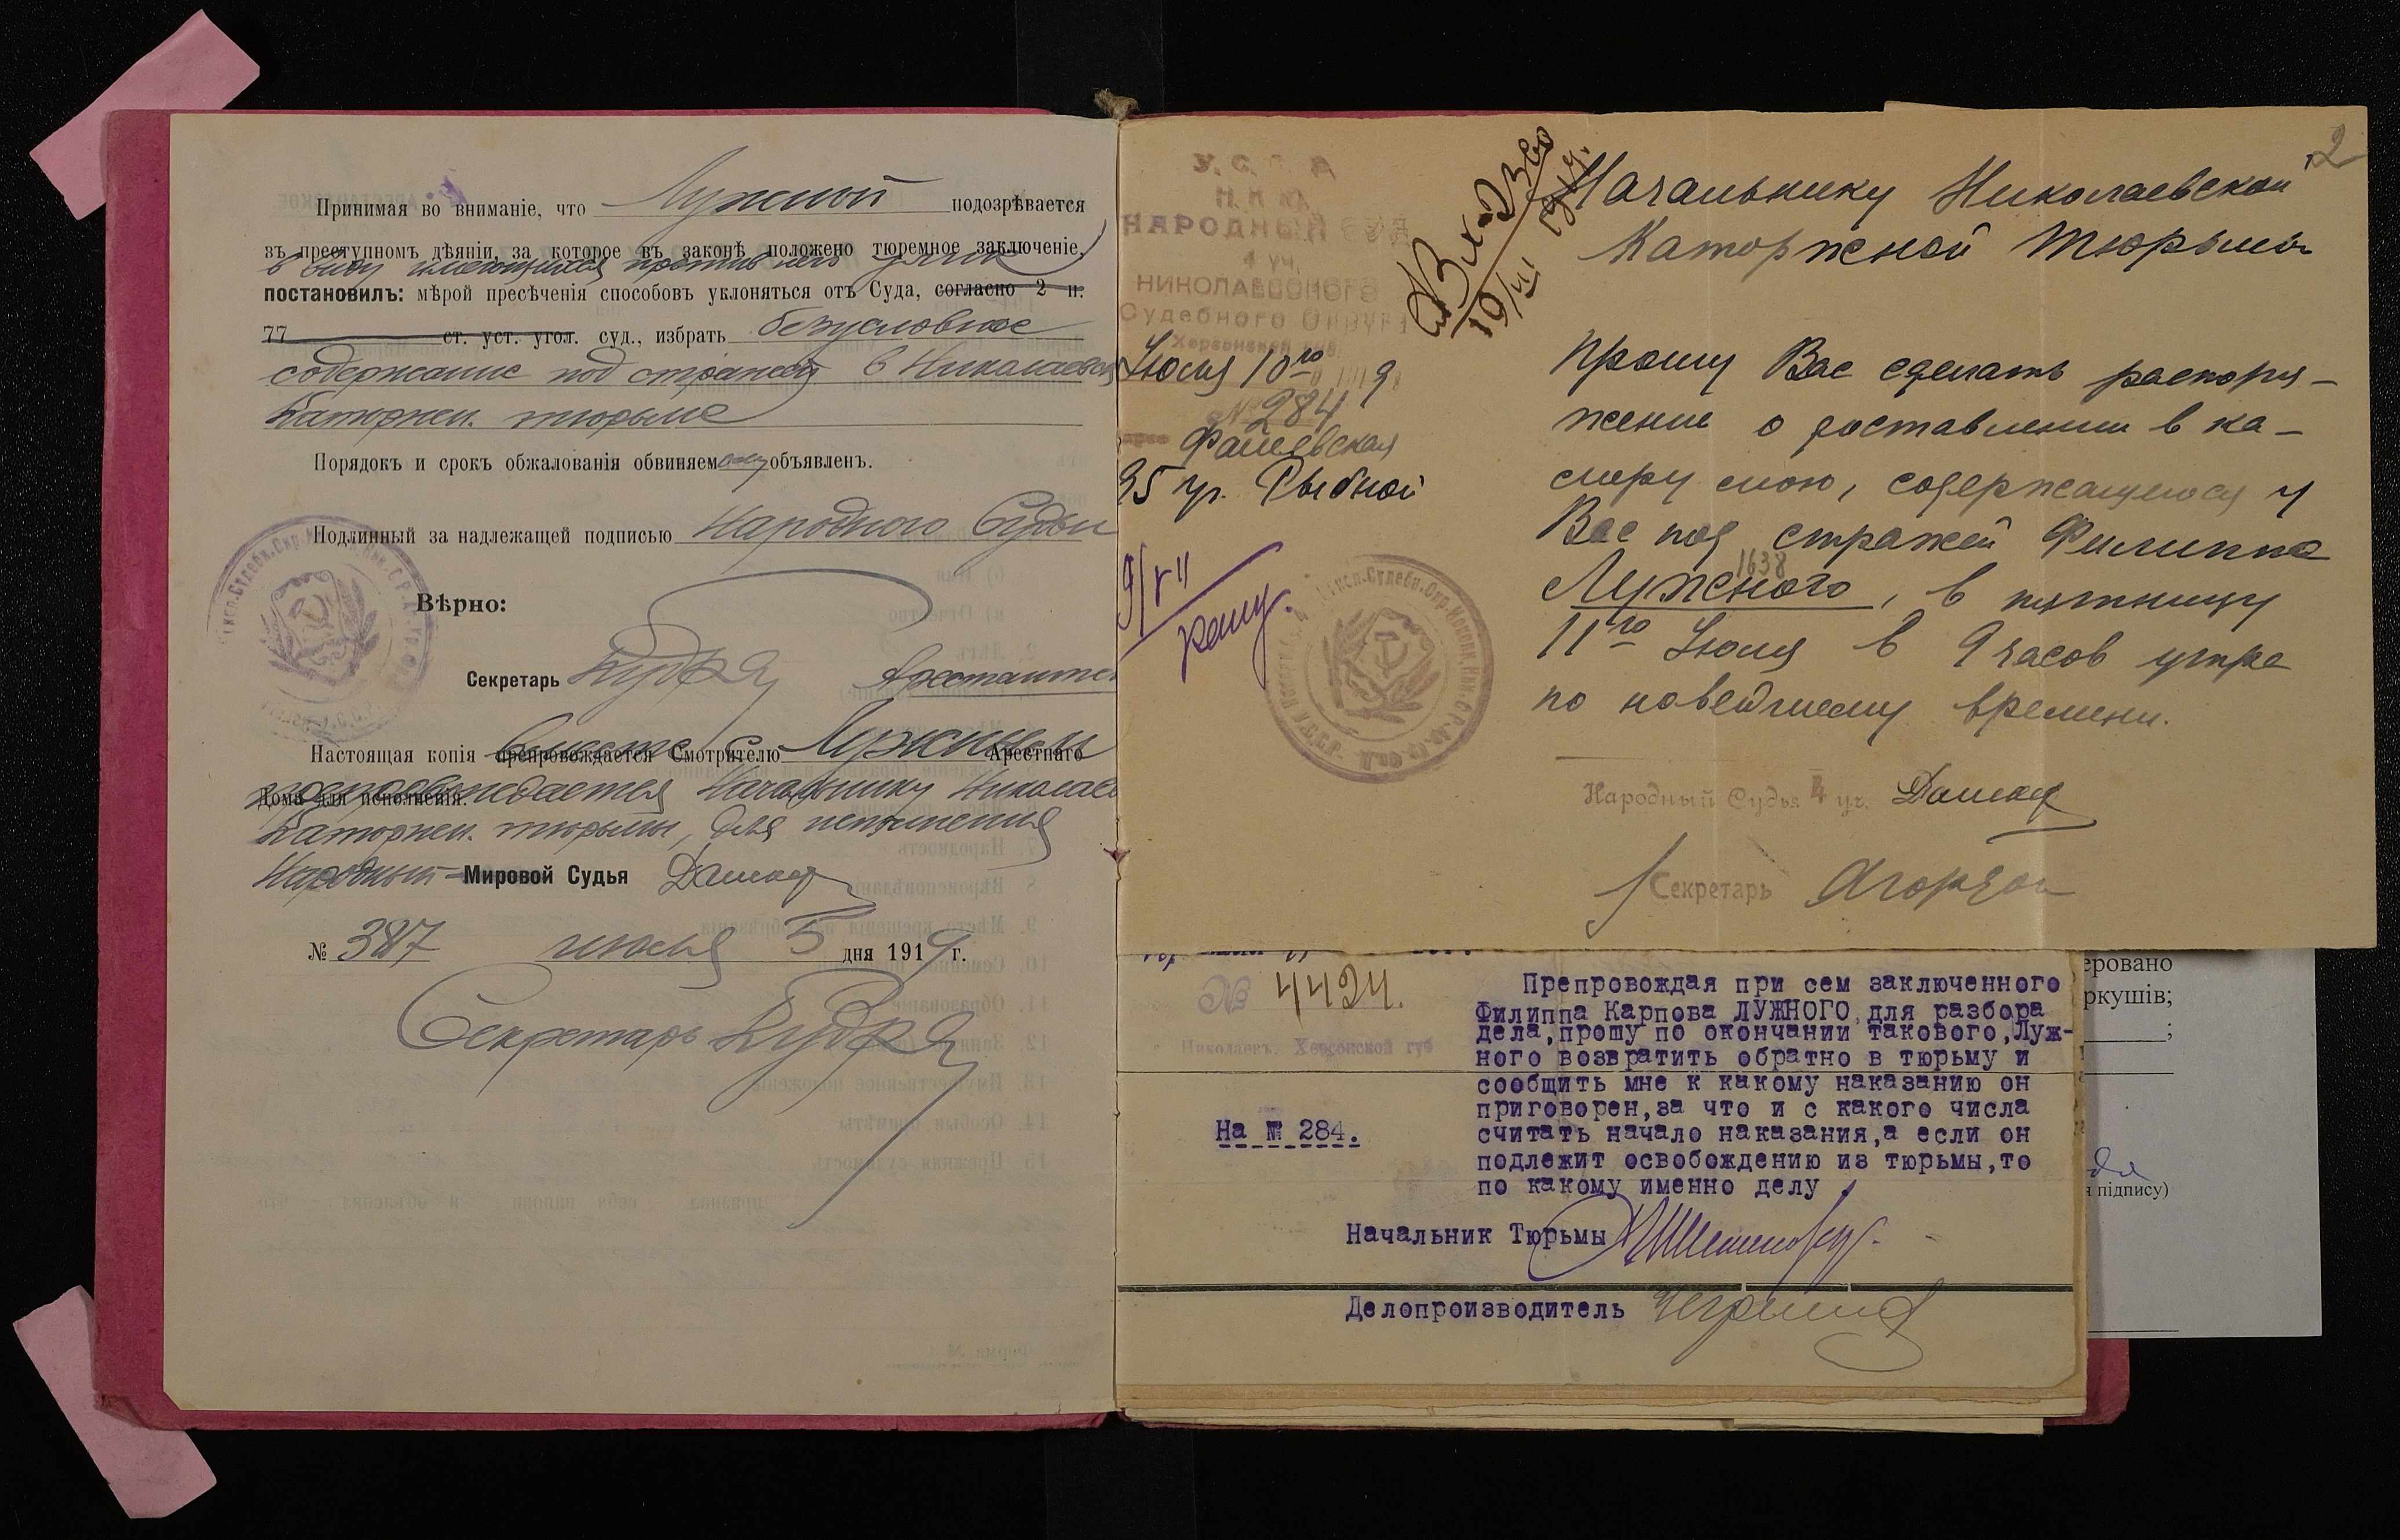 Принимая во вниманіе, что Лужной подозрѣвается
въ преступномъ дѣяніи, за которое въ законѣ положено тюремное заключеніе,
в виду имеющихся против него улик
постановилъ: мѣрой пресѣченія способовъ уклоняться отъ Суда, согласно 2 п.
77 ст. уст. угол. суд., избрать безусловное
содержание под стражей в Николаевской
Каторжн. тюрьме
Порядокъ и срокъ обжалованія обвиняемому объявленъ.
Подлинный за надлежащей подписью Народного Судьи
Вѣрно:
Секретарь Кудря
Настоящая копія препровождается Смотрителю Арестнаго
вместе с Лужным
Дома для исполненія.
препровождается Начальнику Николаев
Каторжн. тюрьмы, для исполнения
Народный Мировой Судья
№ 387 июля 5 дня 1919 г.
Секретарь Кудря
2
У.С.С.Р.
Н.К.Ю.
НАРОДНЫЙ СУД
4 уч.
НИКОЛАЕВСКОГО
Судебного Округа
Херсонской губ.
Июля 10го 9
№ 284
95 уг. Рыбной
Вх. 2360
19/VII 19 г.
Начальнику Николаевской
Каторжной Тюрьмы
Прошу Вас сделать распоря-
жение о доставлении в ка-
меру мою, содержащегося у
Вас под стражей Филиппа
1638
Лужного, в пятницу
11го Июля в 9 часов утра
по новейшему времени.
Народный Судья 4 уч.
Секретарь
№ 4424.
Николаевъ. Херсонской губ
На № 284.
Препровождая при сем заключенного
Филиппа Карпова ЛУЖНОГО для разбора
дела, прошу по окончании такового, Луж-
ного возвратить обратно в тюрьму и
сообщить мне к какому наказанию он
приговорен, за что и с какого числа
считать начало наказания, а если он
подлежит освобождению из тюрьмы, то
по какому именно делу.
Начальник Тюрьмы
Делопроизводитель
еровано
ркушів;
;
підпису)